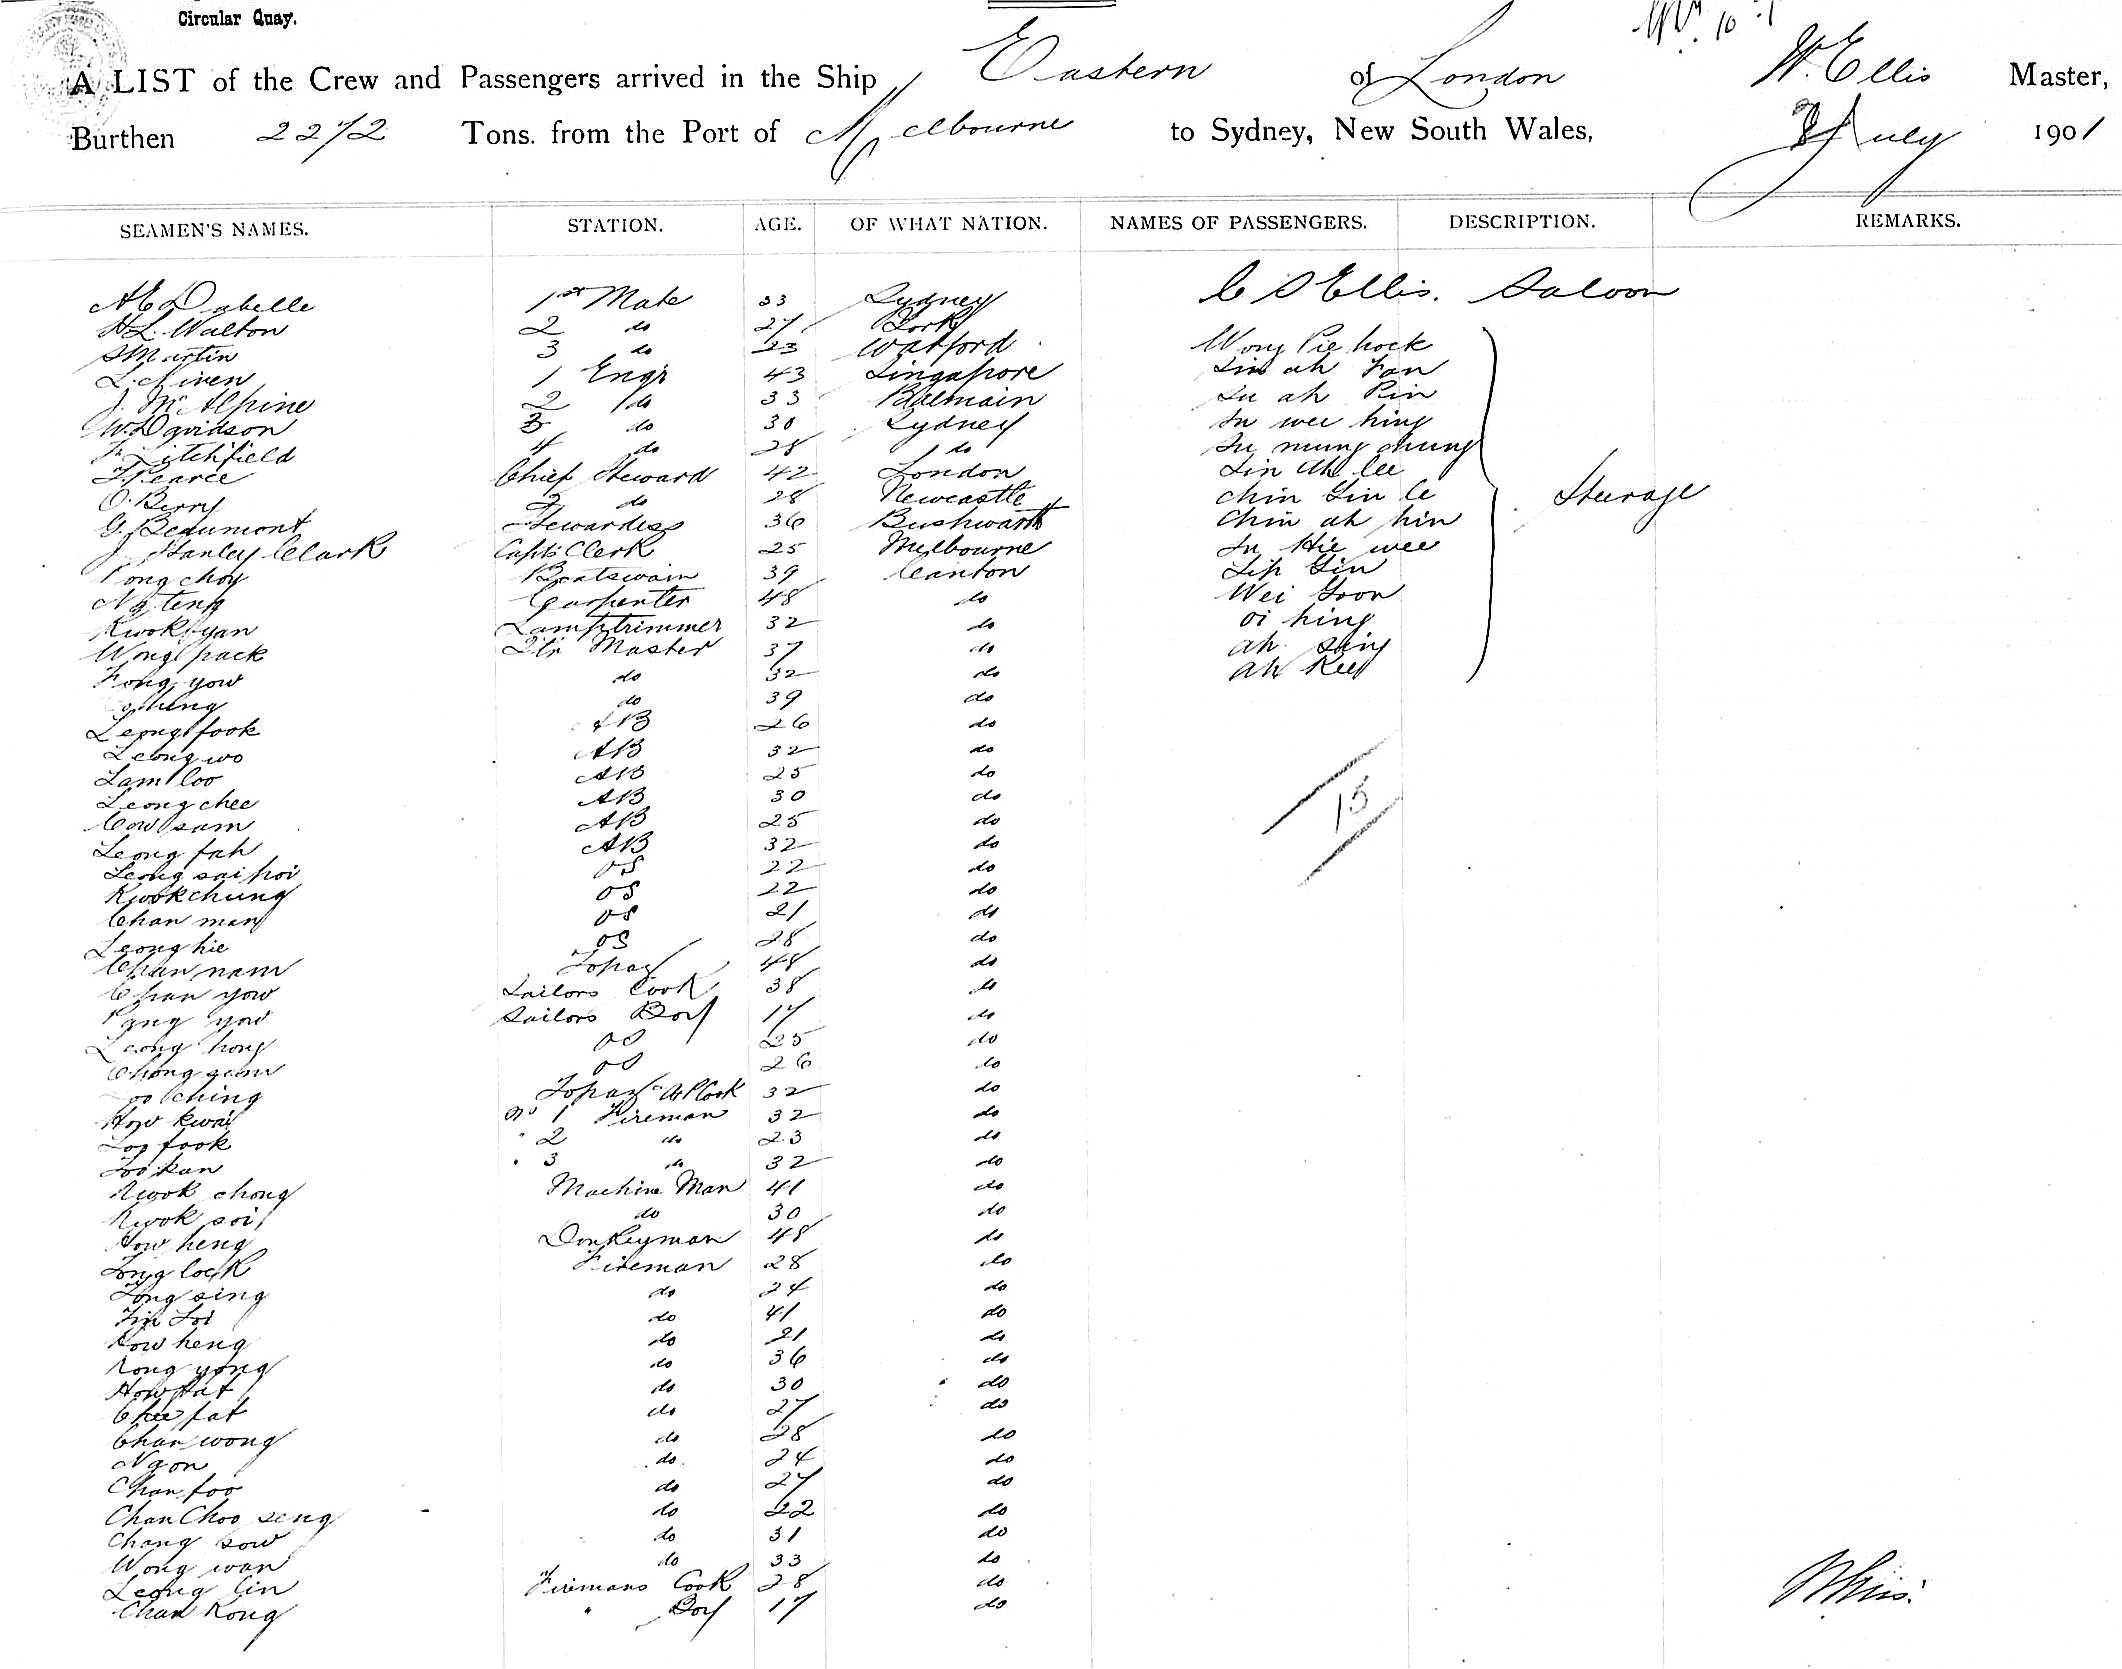 Circular Quay.
A LIST of the Crew and Passengers arrived in the Ship Eastern of London W. Ellis Master,
Burthen 2272 Tons. from the Port of Melbourne to Sydney, New South Wales, July 1901
SEAMEN'S NAMES. STATION. AGE. OF WHAT NATION. NAMES OF PASSENGERS. DESCRIPTION. REMARKS.
C S Ellis. Saloon
A E Dabelle 1st Mate 33 Sydney
H L. Walton 2 do 27 York Wong Pie hock
S Martin 3 do 23 Watford
1 Engr 43 Singapore
J. McAlpine 2 do 33 Balmain Su ah Pin
W. Davidson 3 do 30 Sydney Su wee hing
Litchfield 4 do 28 do Su mung chung
Pearce Chief Steward 42 London Lin Ah lee
O. Berry 2 do 28 Newcastle Chin Gin le
G. Beaumont Stewardess 36 Chin ah hin Steerage
J. Stanley Clark Capts Clerk 25 Melbourne Su Hie wee
Pong choy Boatswain 39 Canton
Ng teng Carpenter 48 do Wei Goon
Kwok yan Lamptrimmer 32 do oi hing
Wong pack Qtr Master 37 do ah sing
Fong yow do 32 do ah Kee
do 39 do
Leong fook AB 26 do
Leong wo AB 32 do
Lam loo AB 25 do
Leong chee AB 30 do 15
Cow sam AB 25 do
Leong fah AB 32 do
Leong sai poi OS 22 do
Kwok chung OS 22 do
Chan man OS 21 do
Leong hie OS 28 do
Chan nam Topaz 48 do
Chan yow Sailors Cook 38 do
Pang yow Sailors Boy 17 do
Leong hong OS 25 do
Chong OS 26 do
ching Topaz Cook 32 do
How kwai No 1 Fireman 32 do
Loo fook " 2 do 23 do
Loo kan " 3 do 32 do
Kwok chong Machine Man 41 do
Kwok soi do 30 do
How heng Donkeyman 48 do
Tong lock Fireman 28 do
Tong sing do 24 do
do 41 do
How heng do 21 do
yong do 36 do
How fat do 30 do
Chee fat do 27 do
Chan wong do 28 do
Ngon do 24 do
Chan foo do 27 do
Chan Choo seng do 22 do
Chang sow do 31 do
Wong wan do 33 do
Leong lin Firemans Cook 28 do
Chan Kong " Boy 17 do